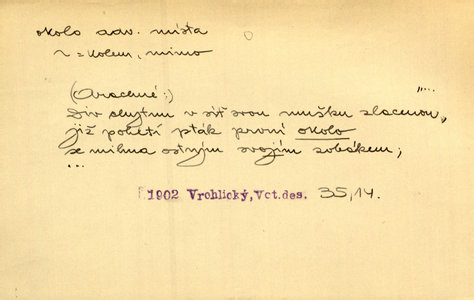 okolo adv. místa
~ = kolem, mimo
(Arachné:) "...
Div chytnu v síť svou mušku zlacenou,
již pohltí pták první okolo
se mihna ostrým svojím zobákem;
...
1902 Vrchlický, Vct.des. 35,14.